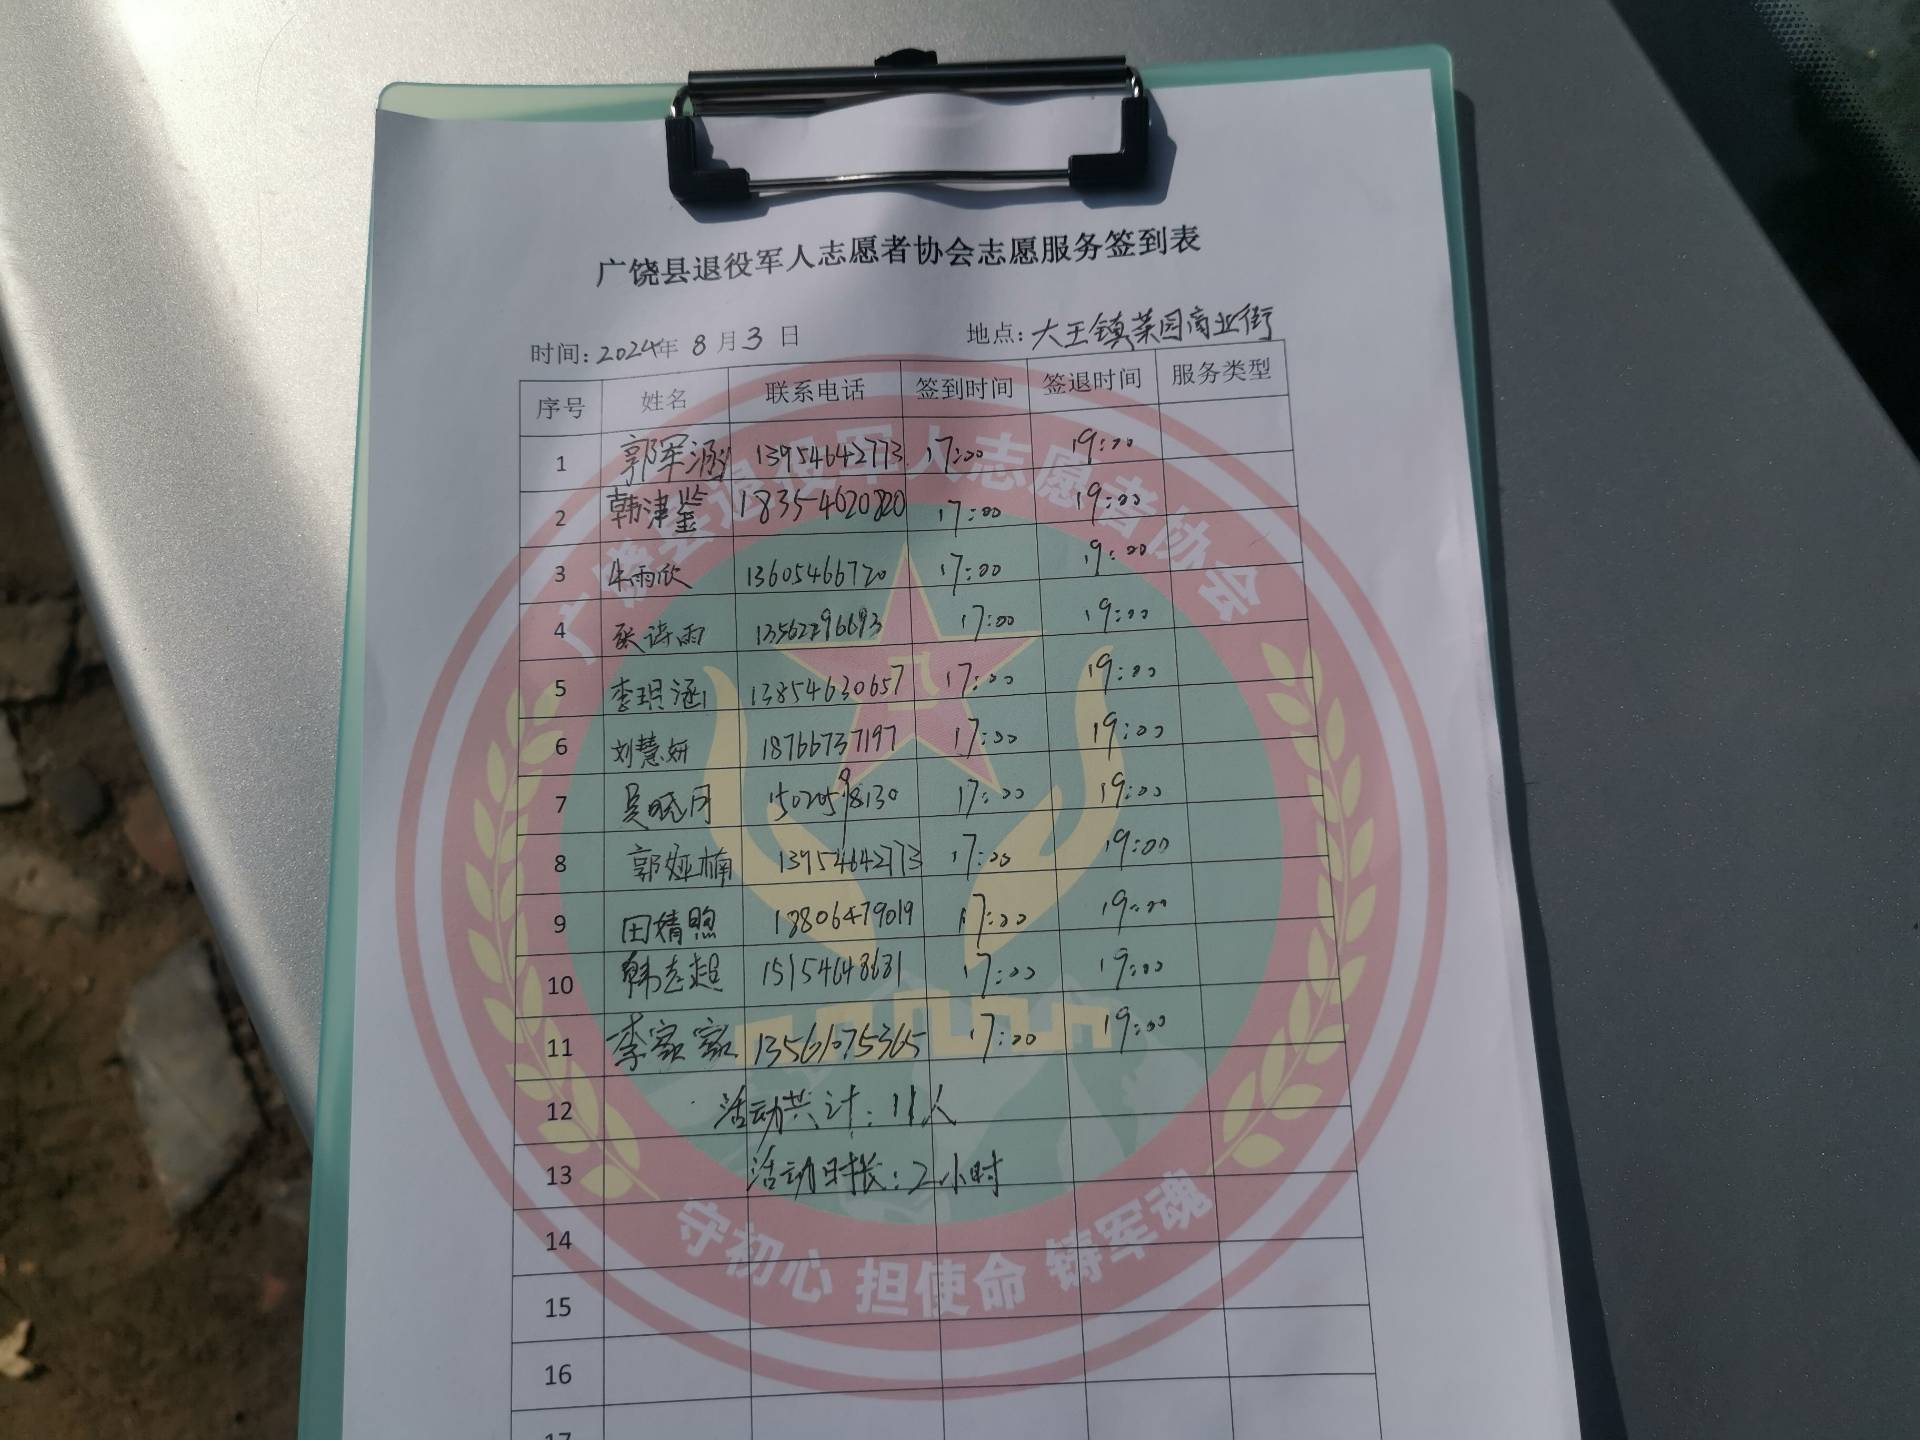 广饶县退役军人志愿者协会志愿服务签到表
时间: 2024年 8 月 3 日 地点: 大王镇菜园商业街
序号 姓名 联系电话 签到时间 签退时间 服务类型
1 郭军涵 13954642773 17:00 19:00
2 韩津鉴 18354620820 17:00 19:00
3 牛雨欣 13605466720 17:00 19:00
4 张诗雨 13562296693 17:00 19:00
5 李玥涵 13854630657 17:00 19:00
6 刘慧妍 18766737197 17:00 19:00
7 吴晓月 17:00 19:00
8 郭娅楠 13954642773 17:00 19:00
9 田婧煦 18806479019 17:00 19:00
10 韩志超 15154648681 17:00 19:00
11 李家家 13561075365 17:00 19:00
12 活动共计: 11人
13 活动时长: 2小时
14
15
16
17
广饶县退役军人志愿者协会
八一
守初心 担使命 铸军魂